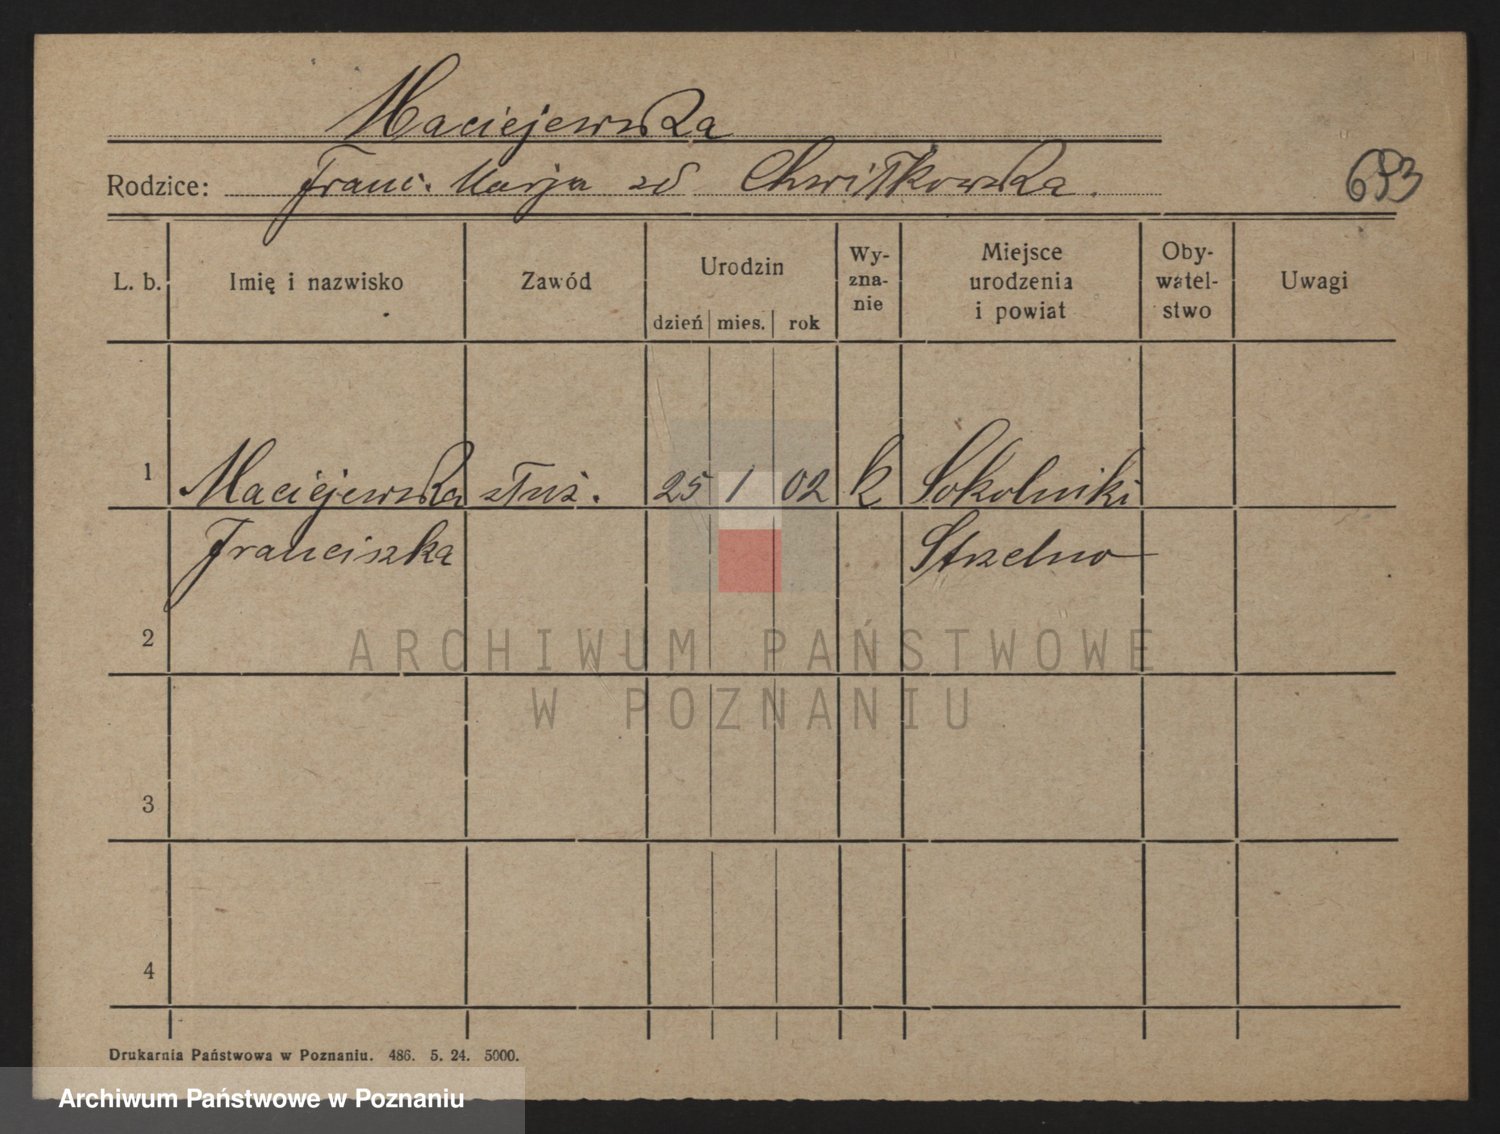 Maciejewska
Rodzice: Franc. Marja zd Chwiłkowska.
693
L. b. Imię i nazwisko Zawód Urodzin dzień mies. rok Wy-zna-nie Miejsce urodzenia i powiat Oby-watel-stwo Uwagi
1 Maciejewska służ. 25 1 02 k Sokolniki
Franciszka Strzelno
2
ARCHIWUM PAŃSTWOWE
W POZNANIU
3
4
Drukarnia Państwowa w Poznaniu. 486. 5. 24. 5000.
Archiwum Państwowe w Poznaniu